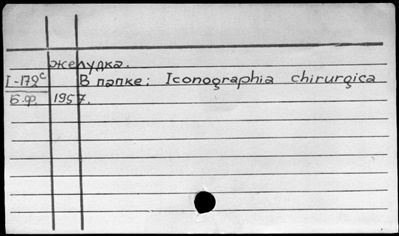 желудка.
I-172с В папке: Iconographia chirurgica
Б.ф. 1957.